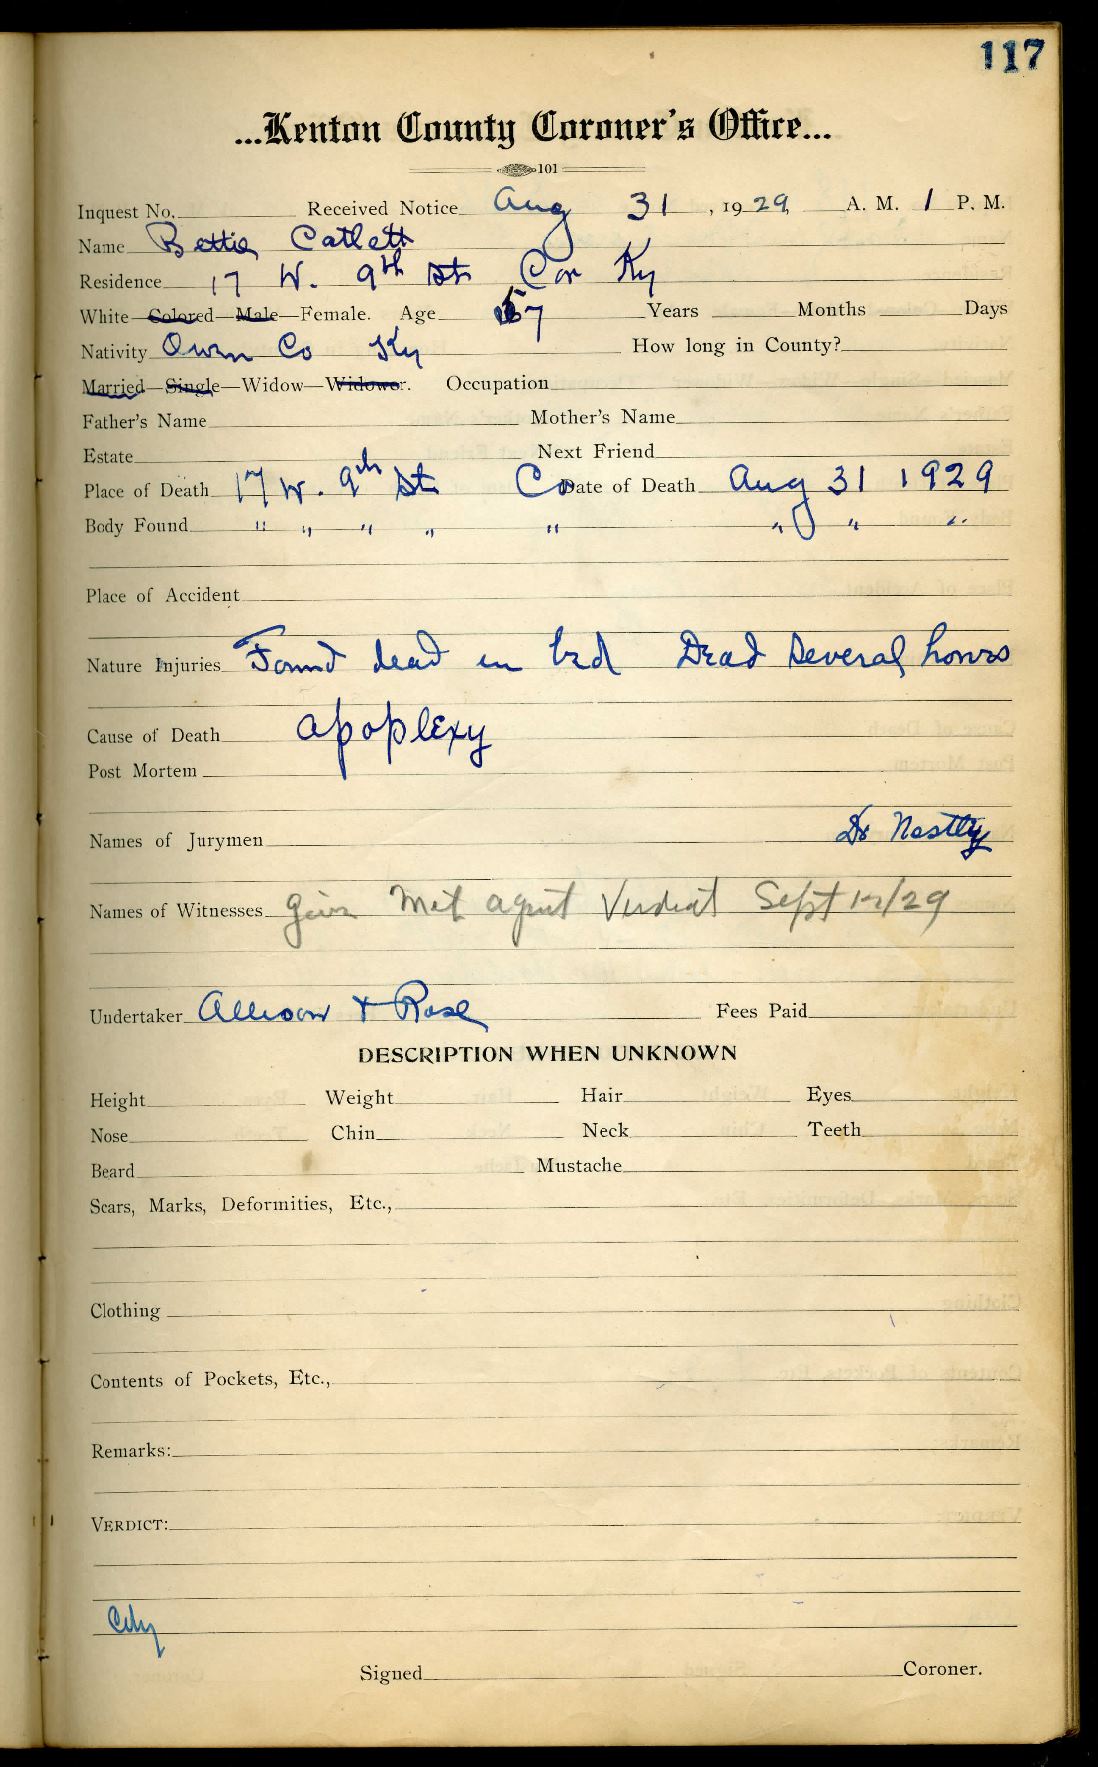 117
...Kenton County Coroner's Office...
101
Inquest No. Received Notice Aug 31, 1929, A. M. 1 P. M.
Name Bettie Catlett
Residence 17 W. 9th St Cov Ky
White—Colored—Male—Female. Age 57 Years Months Days
Nativity Owen Co Ky How long in County?
Married—Single—Widow—Widower. Occupation
Father's Name Mother's Name
Estate Next Friend
Place of Death 17 W. 9th St Co Date of Death Aug 31 1929
Body Found " " " " " " " "
Place of Accident
Nature Injuries Found dead in bed Dead several hours
Cause of Death apoplexy
Post Mortem
Names of Jurymen Dr
Names of Witnesses Give Met agent Verdict Sept 12/29
Undertaker Allison + Rose Fees Paid
DESCRIPTION WHEN UNKNOWN
Height Weight Hair Eyes
Nose Chin Neck Teeth
Beard Mustache
Scars, Marks, Deformities, Etc.,
Clothing
Contents of Pockets, Etc.,
Remarks:
VERDICT:
City
Signed Coroner.